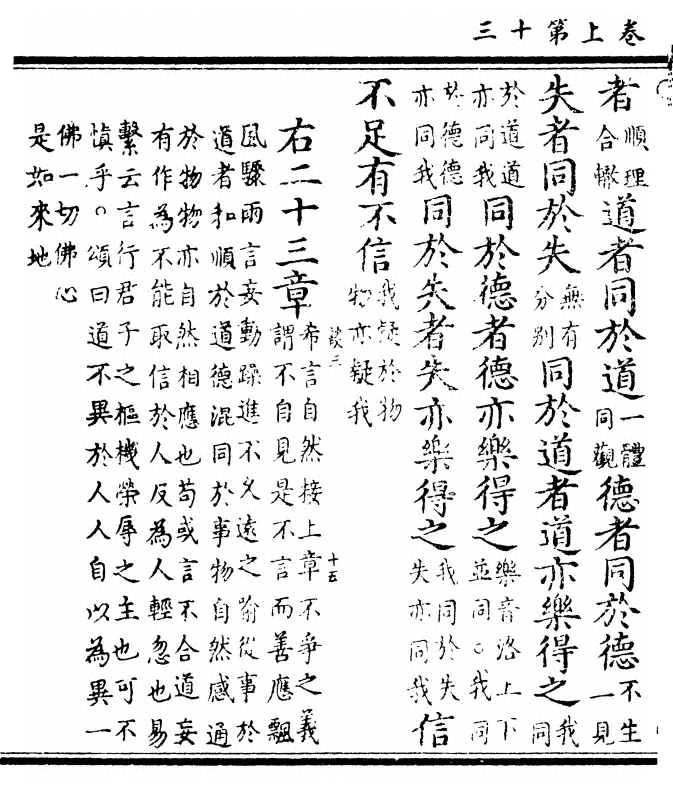 卷上第十三
者順理合轍道者同於道一體同觀德者同於德不生一見
失者同於失無有分別同於道者道亦樂得之我同
於道道亦同我同於德者德亦樂得之樂音洛上下並同○我同
於德德亦同我同於失者失亦樂得之我同於失失亦同我信
不足有不信我疑於物物亦疑我
三 十五
右二十三章希言自然接上章不爭之義謂不自見是不言而善應飄
風驟雨言妄動躁進不久遠之喻從事於
道者和順於道德混同於事物自然感通
於物物亦自然相應也苟或言不合道妄
有作為不能取信於人反為人輕忽也易
繫云言行君子之樞機榮辱之主也可不
慎乎○頌曰道不異於人人自以為異一
佛一切佛心
是如來地